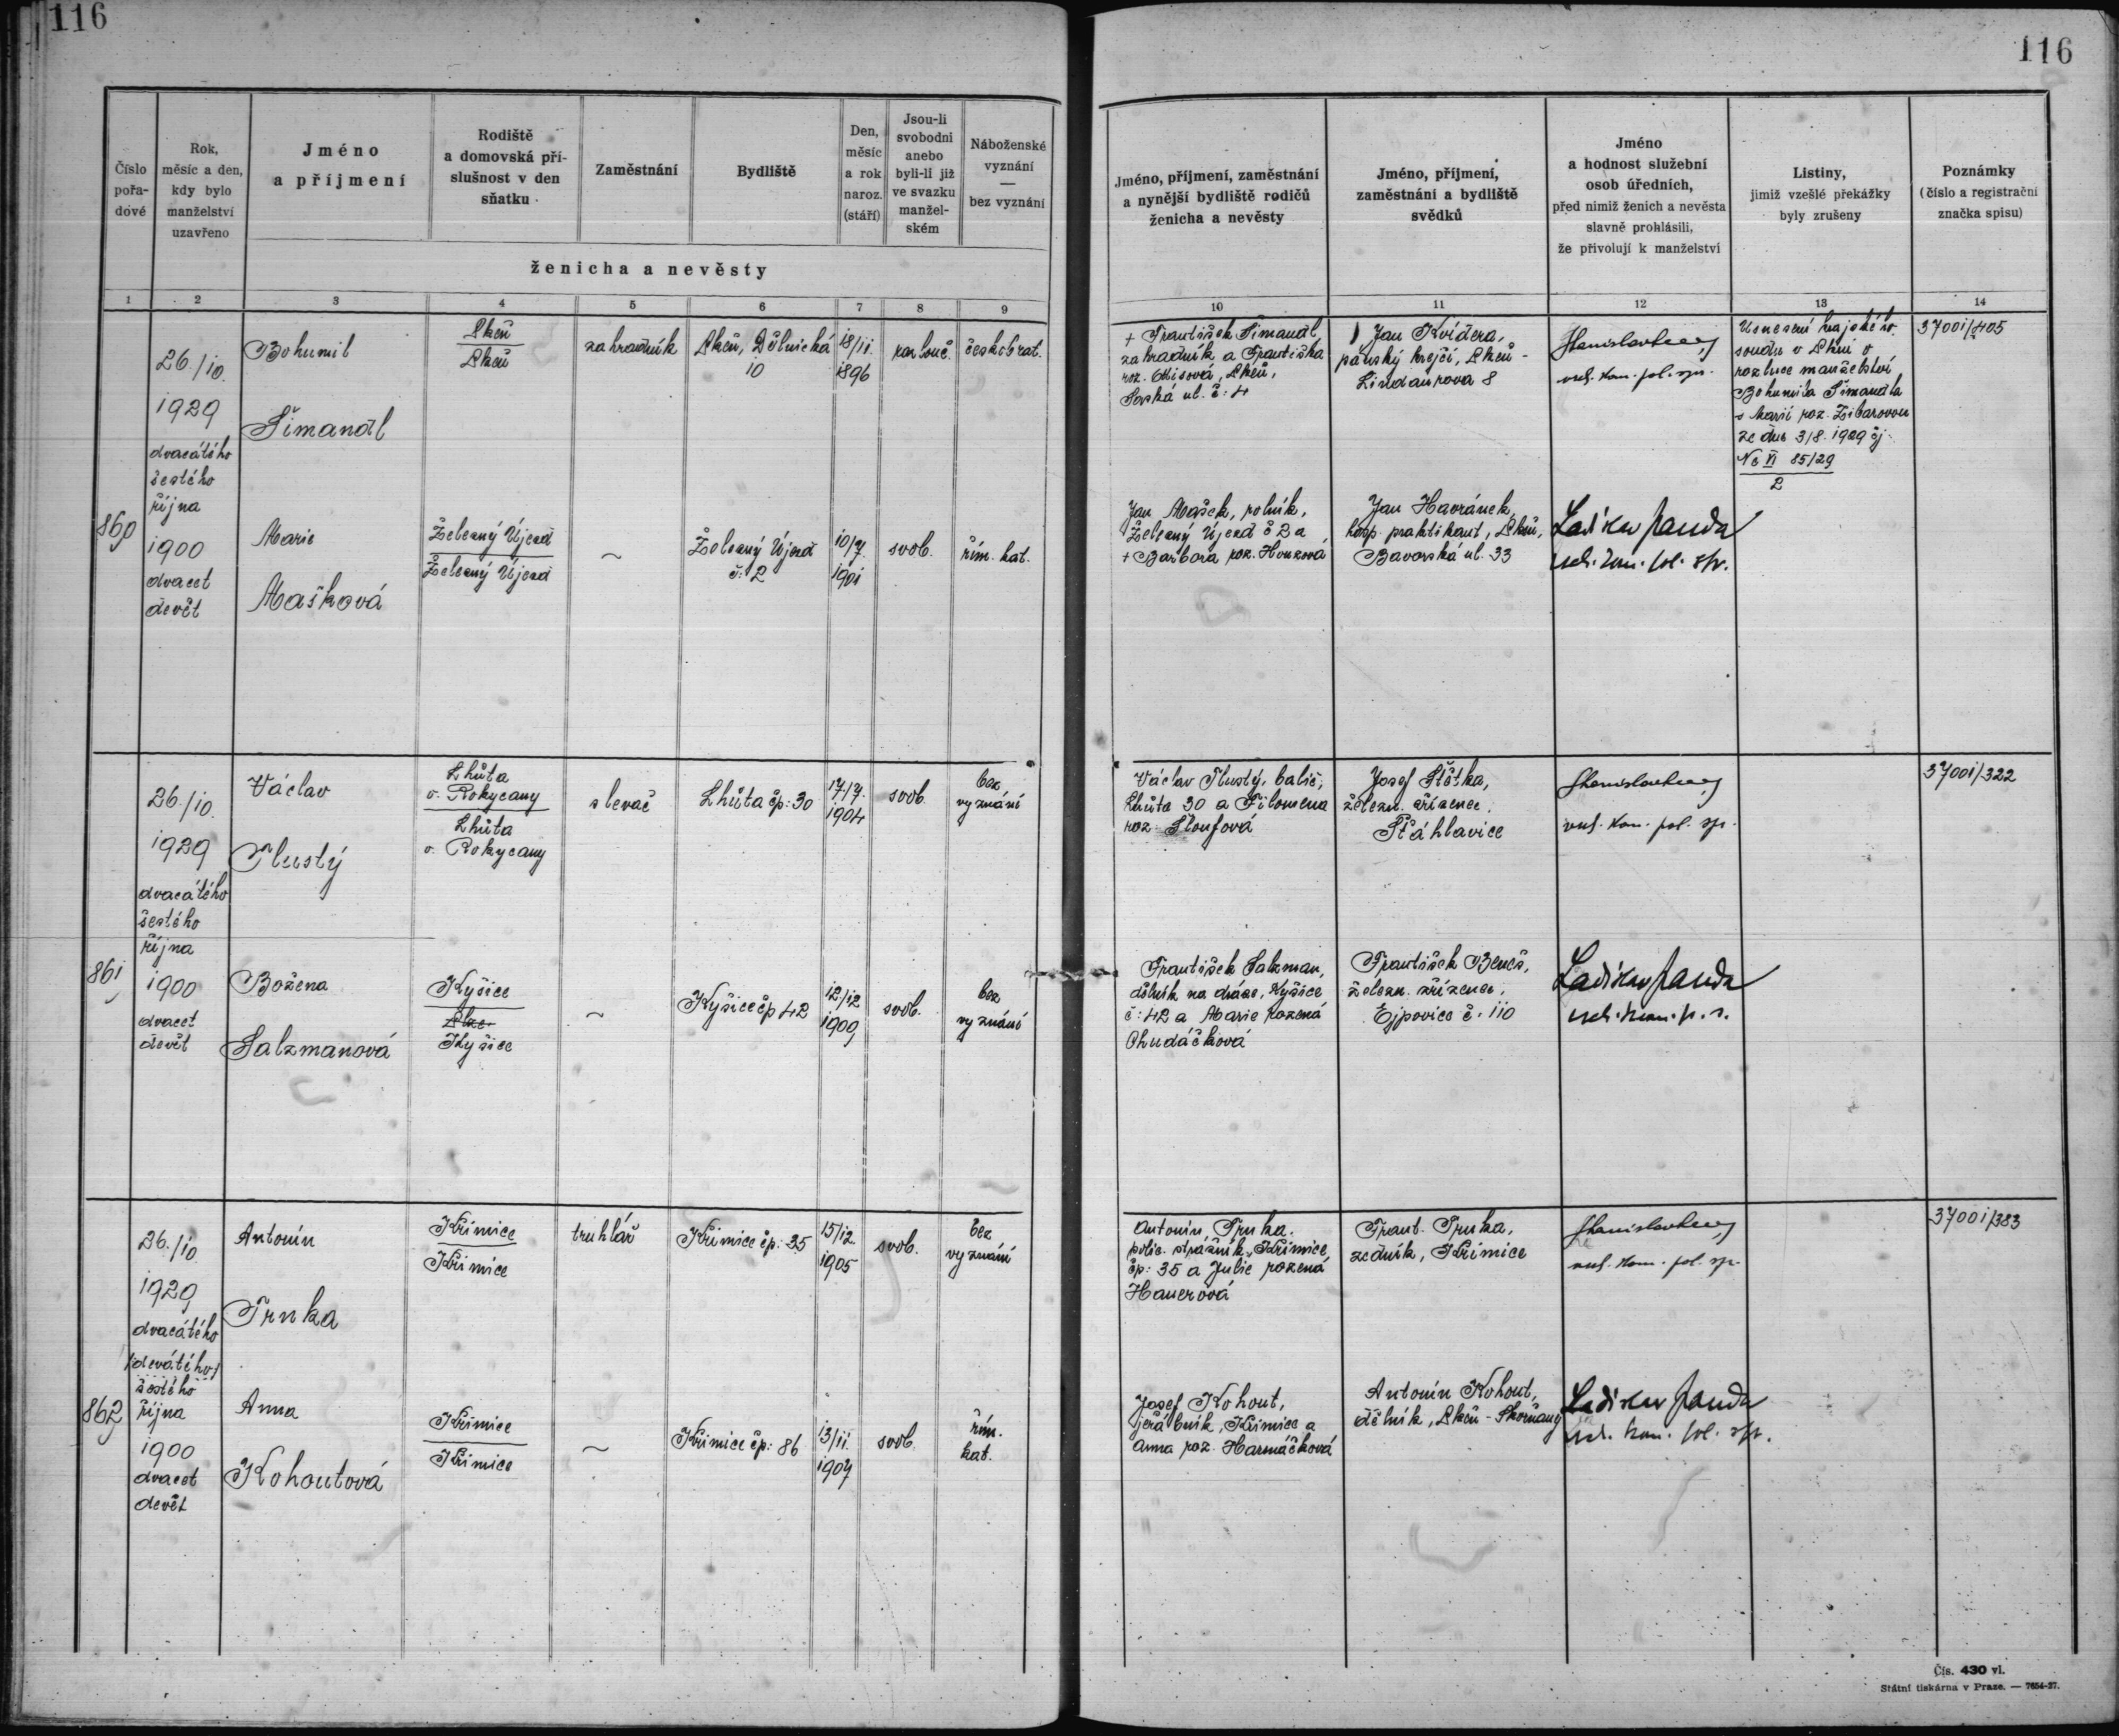 116
116
Číslo pořa- dové
Rok, měsíc a den, kdy bylo manželství uzavřeno
Jméno a příjmení
Rodiště a domovská pří- slušnost v den sňatku
Zaměstnání
Bydliště
Den, měsíc a rok naroz. (stáří)
Jsou-li svobodni anebo byli-li již ve svazku manžel- ském
Náboženské vyznání — bez vyznání
ženicha a nevěsty
Jméno, příjmení, zaměstnání a nynější bydliště rodičů ženicha a nevěsty
Jméno, příjmení, zaměstnání a bydliště svědků
Jméno a hodnost služební osob úředních, před nimiž ženich a nevěsta slavně prohlásili, že přivolují k manželství
Listiny, jimiž vzešlé překážky byly zrušeny
Poznámky (číslo a registrační značka spisu)
1 2 3 4 5 6 7 8 9 10 11 12 13 14
860
26./10.
1929
dvacátého
šestého
října
1900
dvacet
devět
Bohumil
Šimandl
Plzeň
Plzeň
zahradník
Plzeň, Dělnická
10
18/11.
1896
rozlouč.
českobrat.
+ František Šimandl
zahradník a Františka
roz. Plzeň,
ul. č: 4
Jan Kvídera,
pánský krejčí, Plzeň -
Lindaurova 8
vrch. kom. pol. spr.
Usnesení krajského
soudu v Plzni o
rozluce manželství
Bohumila Šimandla
s Marií roz. Zíbarovou
ze dne 3/8. 1929 čj.
Nc VI 85/29
2
3700i/405
Marie
Mašková
Želesný Újezd
Želesný Újezd
~
Želesný Újezd
č: 2
10/7.
1901
svob.
řím. kat.
Jan Mašek, rolník,
Želesný Újezd č 2 a
+ Barbora roz.
Jan Havránek,
hosp. praktikant, Plzeň,
Bavorská ul. 33
Ladislav Janda
vrch. kom. pol. spr.
861
26./10.
1929
dvacátého
šestého
října
1900
dvacet
devět
Václav
Tlustý
Lhůta
o. Rokycany
Lhůta
o. Rokycany
slevač
Lhůta čp: 30
17./7.
1904
svob.
bez
vyznání
Václav Tlustý, balič,
Lhůta 30 a Filomena
roz. Šloufová
Josef Štětka,
železn. zřízenec,
Štáhlavice
vrch. kom. pol. spr.
3700i/322
Božena
Salzmanová
Kyšice
Plze-
Kyšice
~
Kyšice čp 42
12/12
1909
svob.
bez
vyznání
František Salzman,
dělník na dráze, Kyšice
č: 42 a Marie rozená
Chudáčková
František Beneš,
železn. zřízenec,
Ejpovice č. 110
Ladislav Janda
vrch. kom. p. s.
862
26./10.
1929
dvacátého
/devátého/
šestého
října
1900
dvacet
devět
Antonín
Trnka
Křimice
Křimice
truhlář
Křimice čp: 35
15/12.
1905
svob.
bez
vyznání
Antonín Trnka,
polic. strážník, Křimice,
čp: 35 a Julie rozená
Hauerová
Frant. Trnka,
zedník, Křimice
vrch. kom. pol. spr.
3700i/383
Anna
Kohoutová
Křimice
Křimice
~
Křimice čp: 86
13/11.
1907
svob.
řím.
kat.
Josef Kohout,
jeřábník, Křimice a
Anna roz. Harmáčková
Antonín Kohout,
dělník, Plzeň - Skvrňany
Ladislav Janda
vrch. kom. pol. spr.
Čís. 430 vl.
Státní tiskárna v Praze. — 7654-27.